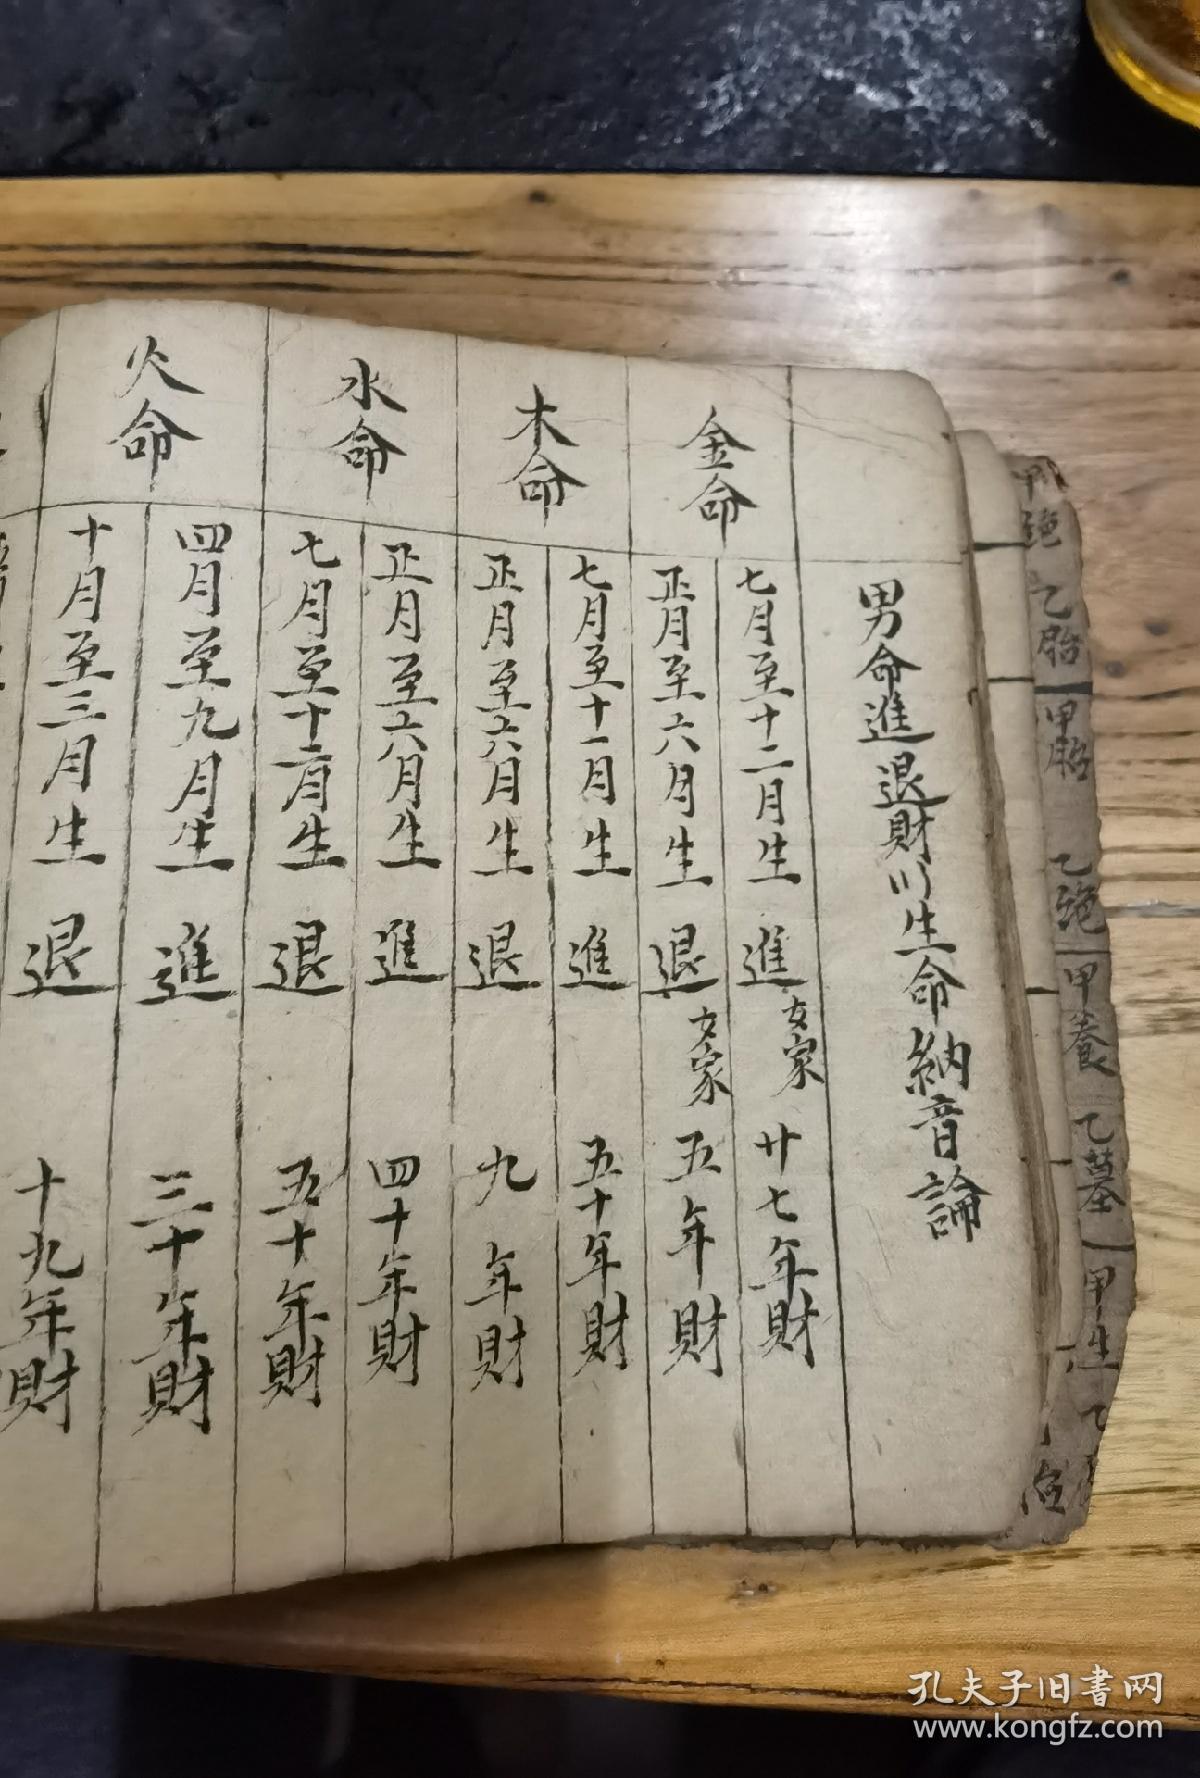 男命進退財川生命納音論
金命
七月至十二月生 進 女家 廿七年財
正月至六月生 退 女家 五年財
木命
七月至十一月生 進 五十年財
正月至六月生 退 九年財
水命
正月至六月生 進 四十年財
七月至十二月生 退 五十年財
火命
四月至九月生 進 三十年財
十月至三月生 退 十九年財
乙胎 甲胎 乙絕 甲養 乙墓 甲生
孔夫子旧書网
www.kongfz.com